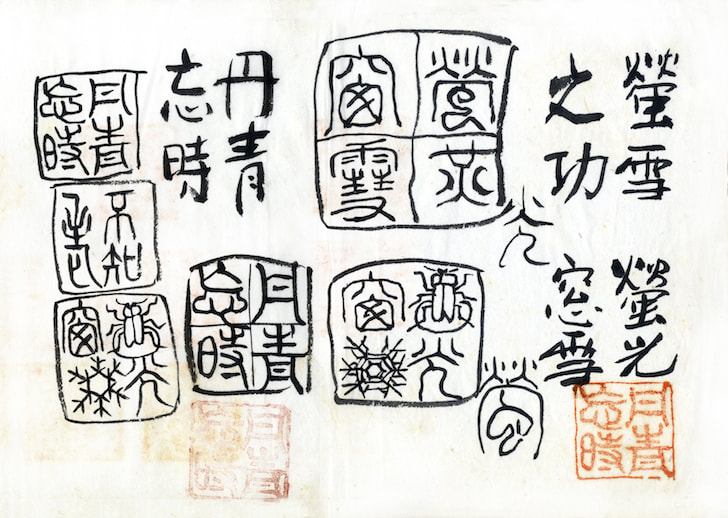 螢雪
之功
螢光
窓雪
丹青
忘時
螢光
窗雪
光
光
窗
螢
丹青
忘時
丹青
忘時
丹青
忘時
丹青
忘時
不知
光
窗